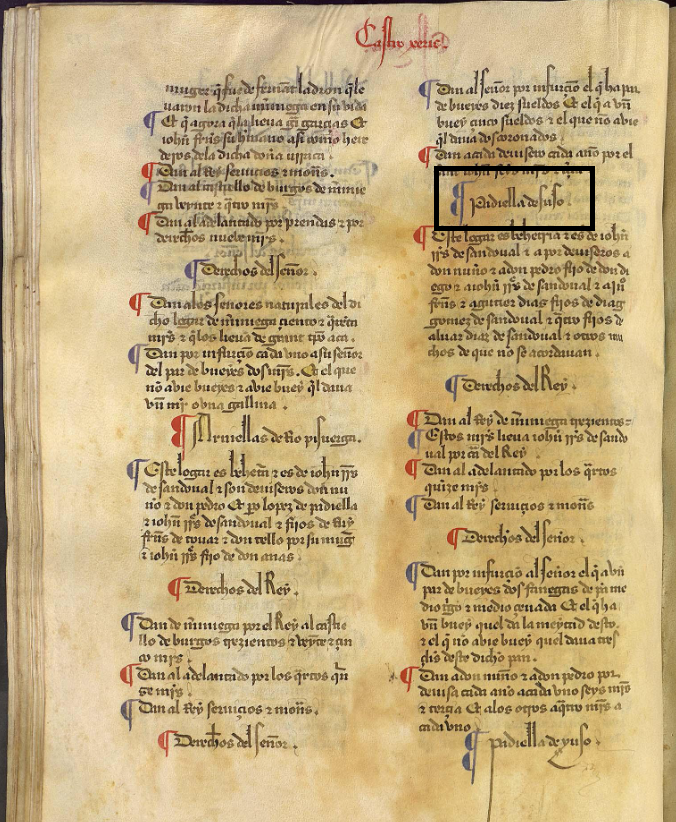 Castro xeriz.
muger q̃ fue de fernant ladron q̃ le
uauan la dicha mιniega en su vida
Et q̃ agora q̃ la lieua garçias Et
iohñ frrs su hermano asi como here
deros dela dicha doña urraca.
Dan al Rey seruiçios ⁊ moñs.
Dan al castiello de burgos de minie
ga veynte ⁊ q̃tro mrs.
Dan al adelantado por prendas ⁊ por
derechos nueue mrs.
Derechos del señor.
Dan alos señores naturales del di
cho logar de miniega çiento ⁊ q̃renta
mrs ⁊ q̃ los lieua de grant tp̃o aca.
Dan por infurçio cada vno a su señor
del par de bueyes dos mrs. Et el que
no auie bueyes ⁊ auie buey q̃l daua
vn mr o vna gallina.
Armellas de Rio pisuerga.
Este logar es beheta ⁊ es de iohñ rrs
de sandoual ⁊ son deuiseros don nu
ño ⁊ don pedro Et po lopez de padiella
⁊ iohñ rrs de sandoual ⁊ fijos de Ruy
frrs de touar ⁊ don tello por su muger
⁊ iohñ rrs fijo de don
Derechos del Rey.
Dan de miniega por el Rey al castie
llo de burgos trezientos ⁊ veynte ⁊ çin
co mrs.
Dan al adelantado por los q̃rtos quin
ze mrs.
Dan al Rey seruiçios ⁊ moñs.
Derechos del señor.
Dan al señor por infurçio el q̃ ha par
de bueyes diez sueldos Et el q̃ a vn
buey çinco sueldos ⁊ el que no auie
q̃l daua dos coronados.
Dan a cada deuisero cada año por el
san iohñ seys mrs ⁊
Padiella de suso.
Este logar es behetria ⁊ es de iohñ
rrs de sandoual ⁊ a por deuiseros a
don nuño ⁊ a don pedro fijo de don di
ego ⁊ a iohñ rrs de sandoual ⁊ a iohñ
frrs ⁊ a gutier dias fijos de diag
gomez de sandoual ⁊ q̃tro fijos de
aluar diaz de sandoual ⁊ otros mu
chos de que no se acordauan.
Derechos del Rey.
Dan al Rey de miniega trezientos
Estos mrs lieua iohñ rrs de sando
ual por cã del Rey.
Dan al adelantado por los q̃rtos
quize mrs.
Dan al Rey seruiçios ⁊ moñs
Derechos del señor.
Dan por infurçio al señor el q̃ a vn
par de bueyes dos fanegas de pan me
dio trigo ⁊ medio çeuada Et el q̃ ha
vn buey quel da la meytad desto
⁊ el q̃ no auie buey quel daua tres
çls deste dicho pan.
Dan a don nuño ⁊ a don pedro por
deuisa cada año a cada vno seys mrs
⁊ terçia Et alos otros a q̃tro mrs a
cada vno.
Padiella de yuso.